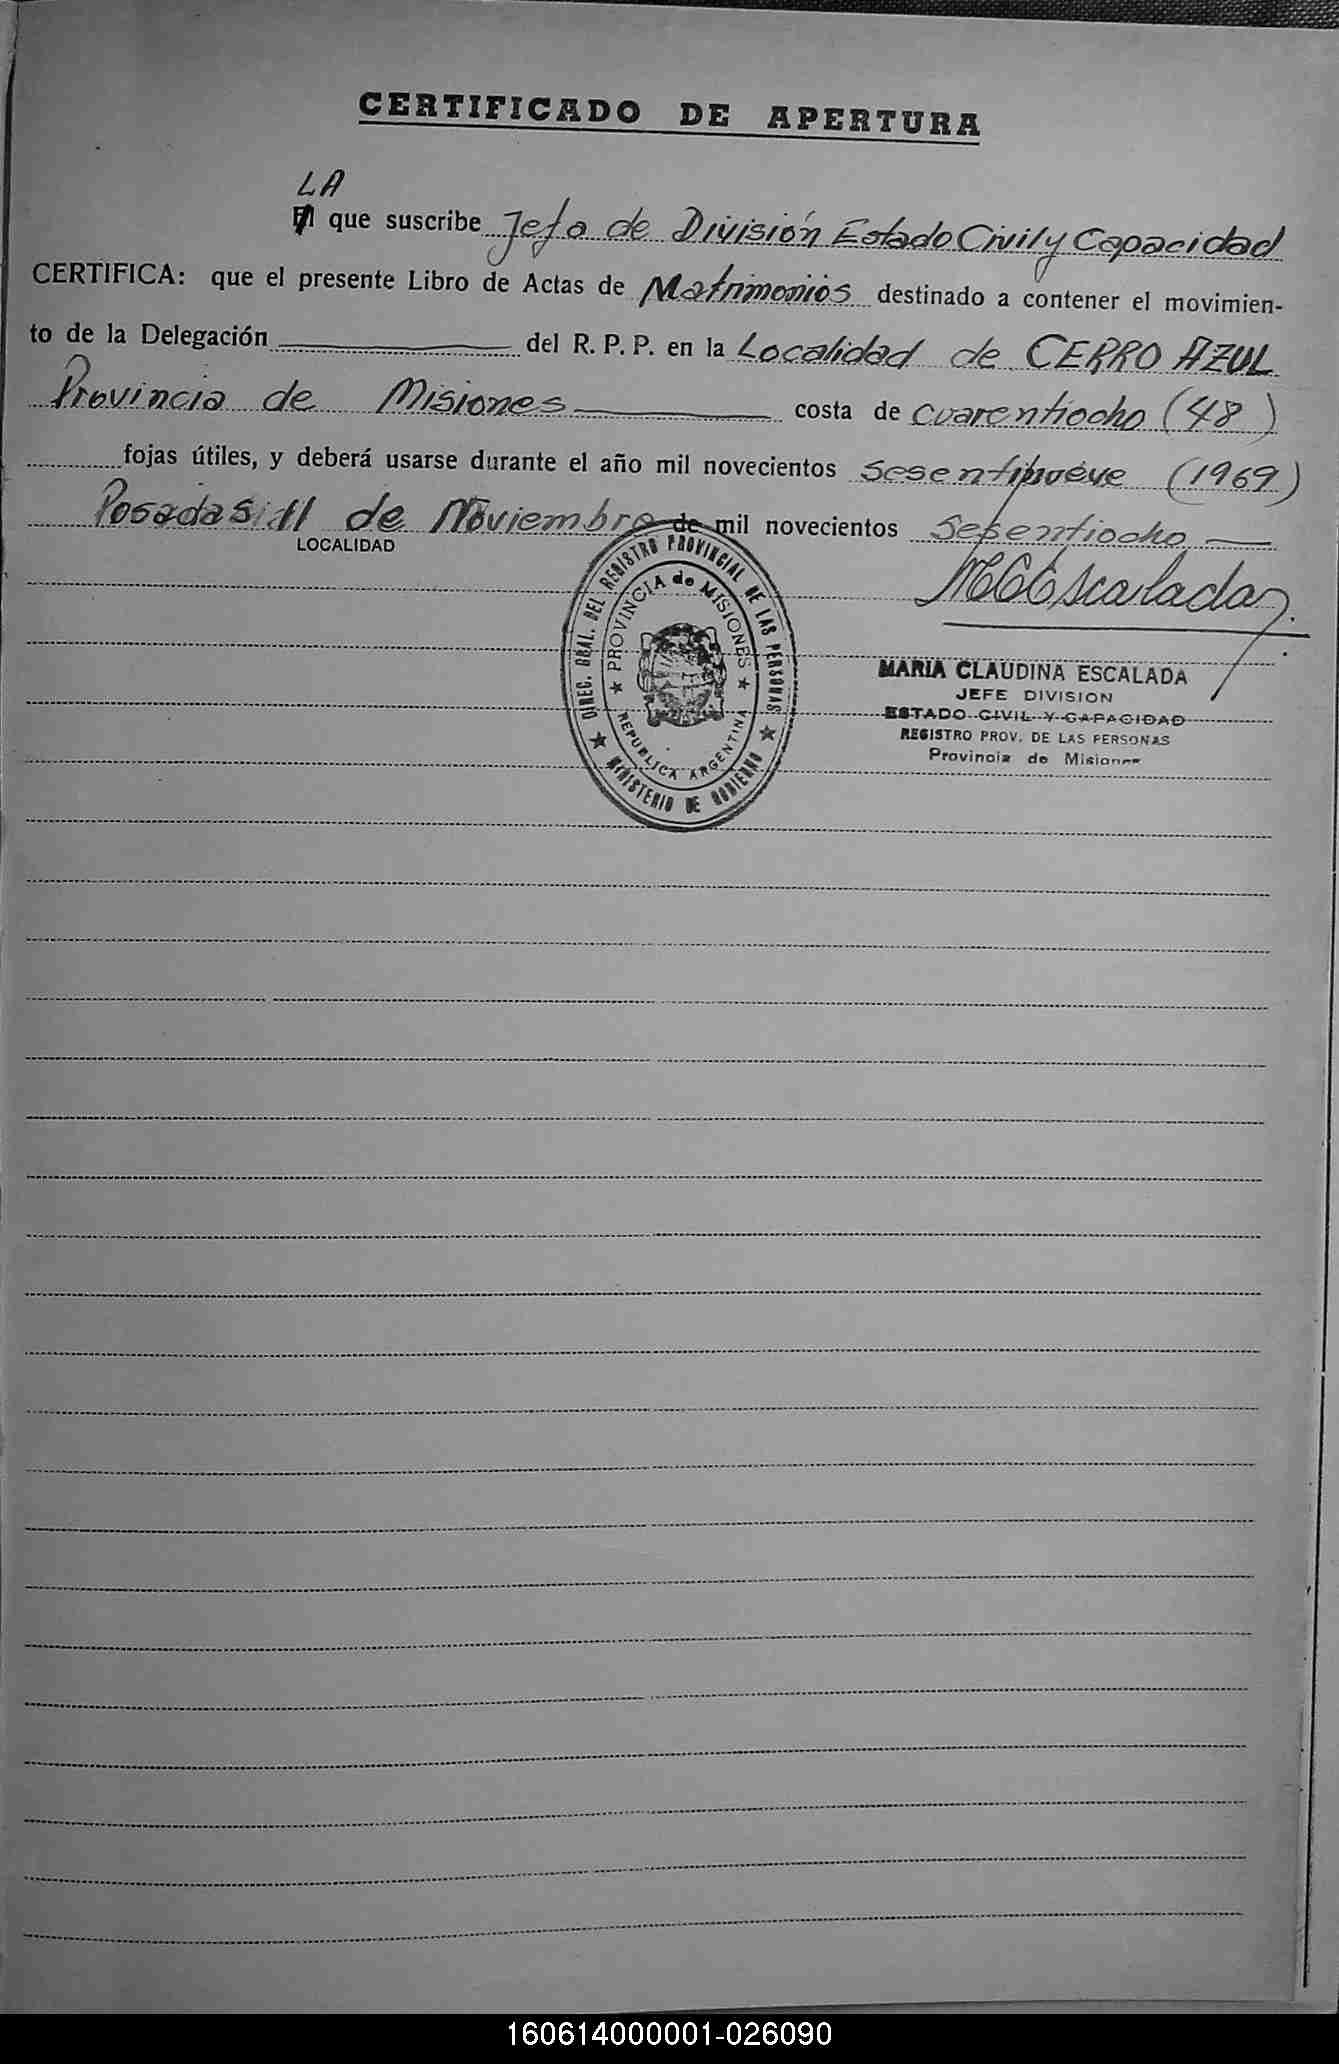 CERTIFICADO DE APERTURA
LA
El que suscribe Jefa de División Estado Civil y Capacidad
CERTIFICA: que el presente Libro de Actas de Matrimonios destinado a contener el movimien-
to de la Delegación del R. P. P. en la Localidad de CERRO AZUL
Provincia de Misiones costa de cuarentiocho (48)
fojas útiles, y deberá usarse durante el año mil novecientos sesentinueve (1969)
Posadas, 11 de Noviembre de mil novecientos sesentiocho
LOCALIDAD
MCEscalada
DIREC. GRAL. DEL REGISTRO PROVINCIAL DE LAS PERSONAS
PROVINCIA de MISIONES
REPUBLICA ARGENTINA
MINISTERIO DE GOBIERNO
MARIA CLAUDINA ESCALADA
JEFE DIVISION
ESTADO CIVIL Y CAPACIDAD
REGISTRO PROV. DE LAS PERSONAS
Provincia de Misiones
160614000001-026090